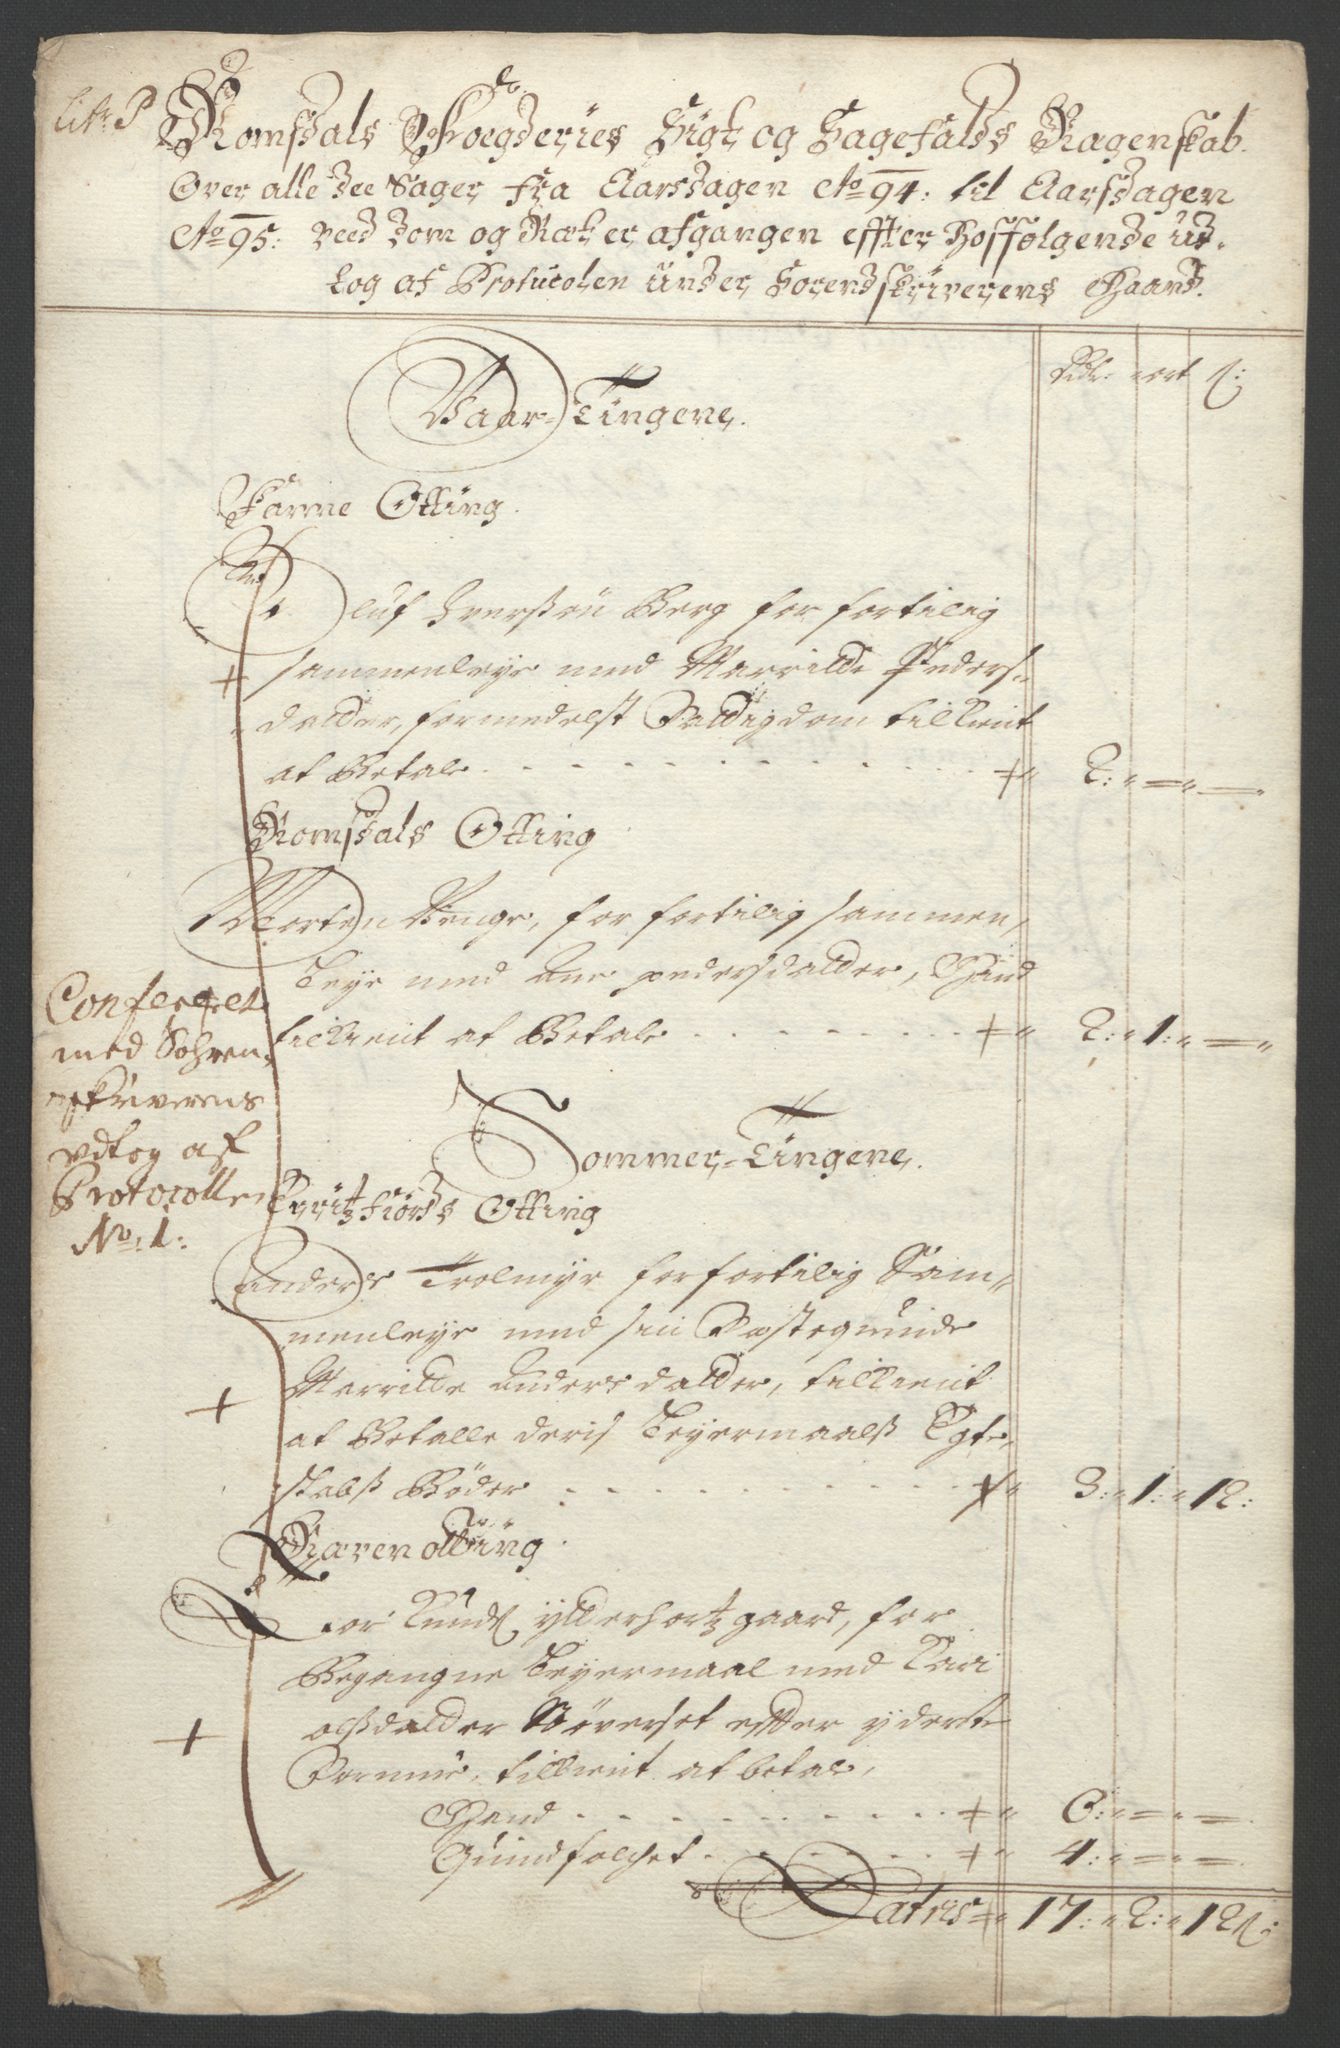 Litr P
Romsdals Fogderies Sigt og Sagefalds Ragenskab
Over alle dee Sager fra Aarsdagen Ao 94: til Aarsdagen
Ao 95: veed dom og Ræt er afgangen effter Hosfølgende ud-
tog af Protucolen under Sorendskriverens Haand.
Rdlr: ort s:
Vaar-Tingene.
Fanne Otting.
Oluf Iverssøn Berg for fortilig
sammenleye med Marrilde Peders-
datter, formedelst Fattigdom tilkient
at Betale . . . 2: " = " = "
Romsdals Otting
Morten Venge, for fortilig sammen,
leye med Ane pedersdatter, Hand
tilkient at Betale . . . 2: " 1: " = "
Confereret
med Sohren,
skriverens
vdtog af
Protocollen
No: 1:
Sommer-Tingene.
Eritzfiords Otting
Anders Trolmyr for fortilig Sam-
menleye med sin Fæsteqvinde
Marritte Andersdatter, tilkient
at Betalle deris Leyermaalss Egte,
skabss Bøder . . . 3: " 1: " 12:
Ræven otting
Tor Knuds ytterhortzgaard, for
Begangne Leyermaal med Kari
olssdatter Nøverset effter yderste
Formue, tilkient at betale,
Hand . . . 6: " = " =
Quindfolchet . . . 4: " = " =
Latris = " 17: " 2: " 12 s: